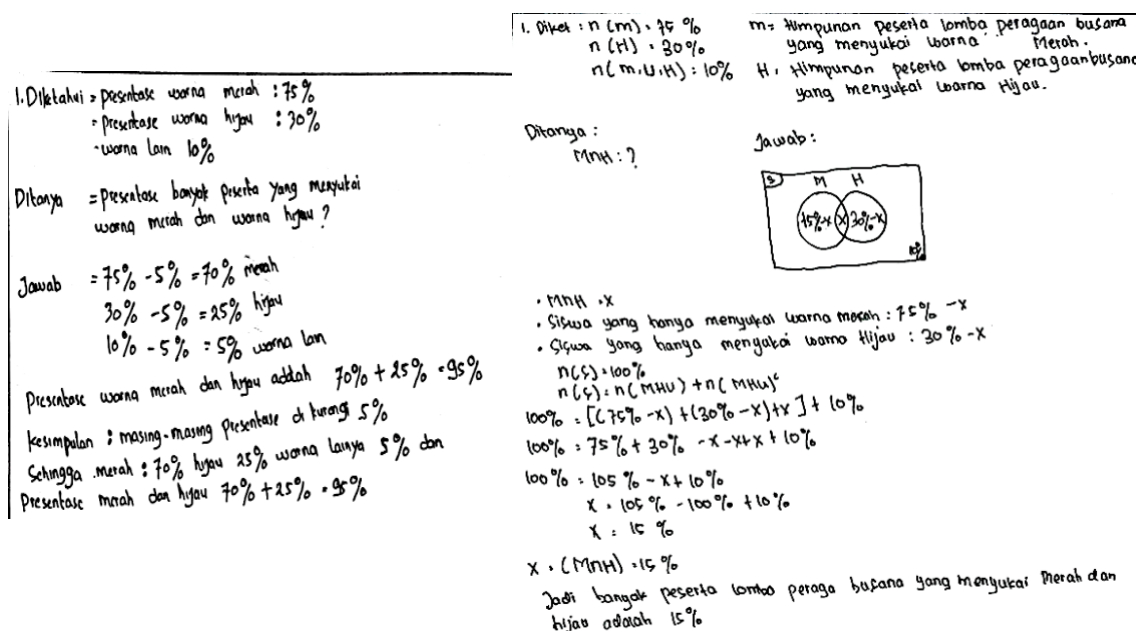 1. Diketahui = presentase warna merah : 75%
= presentase warna hijau : 30%
- warna lain 10%
Ditanya = presentase banyak peserta yang menyukai
warna merah dan warna hijau ?
Jawab = 75% - 5% = 70% merah
30% - 5% = 25% hijau
10% - 5% = 5% warna lain
Presentase warna merah dan hijau adalah 70% + 25% = 95%
Kesimpulan : masing-masing presentase di kurangi 5%
Sehingga merah : 70% hijau 25% warna lainya 5% dan
Presentase merah dan hijau 70% + 25% = 95%
1. Diket : n (m) = 75 %
n (H) = 30%
n( m.U.H) = 10%
m = Himpunan peserta lomba peragaan busana
yang menyukai warna Merah.
H. Himpunan peserta lomba peragaan busana
yang menyukai warna Hijau.
Ditanya :
MnH : ?
Jawab :
S M H
75%-x x 30%-x
10%
• MnH = x
• Siswa yang hanya menyukai warna merah : 75% - x
• Siswa yang hanya menyukai warna Hijau : 30% - x
n(S) = 100%
n(S) = n( MHU) + n( MHU)ᶜ
100% = [(75% - x) + (30% - x) + x ] + 10%
100% = 75% + 30% - x - x + x + 10%
100% = 105 % - x + 10%
x = 105 % - 100% + 10%
x = 15 %
x = (MnH) = 15 %
Jadi banyak peserta lomba peraga busana yang menyukai Merah dan
hijau adalah 15%